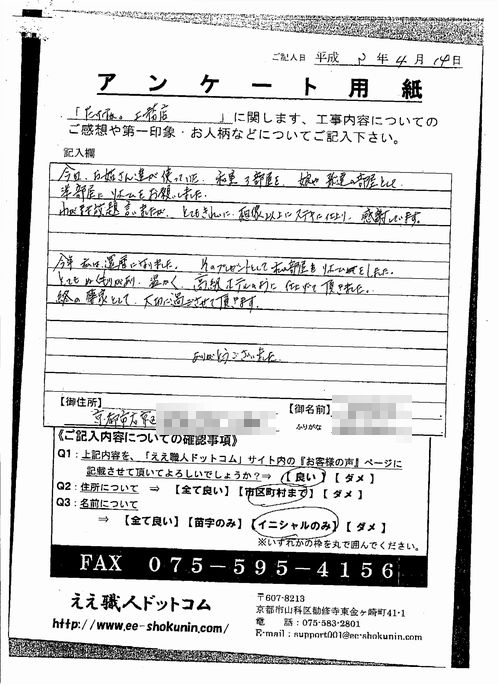 ご記入日 平成 2 年 4 月 14 日
アンケート用紙
「 工務店 」に関します、工事内容についての
ご感想や第一印象・お人柄などについてご記入下さい。
記入欄
今回、お姉さん達が使っていた 部屋を、娘や 部屋として
部屋にリホームをお願いしました。
わがまま放題言いましたが、とてもきれいに、想像以上にステキに仕上り、感謝しています。
今年私は還暦になりました。 プレゼントとして私の部屋もリホームをしました。
とても 温かく、高級ホテルのように仕上げて頂きました。
終の棲家として、大切に過ごさせて頂きます。
ありがとうございました。
【御住所】
京都市右京区
【御名前】
ふりがな
《ご記入内容についての確認事項》
Q1：上記内容を、「ええ職人ドットコム」サイト内の『お客様の声』ページに
記載させて頂いてよろしいでしょうか？⇒ 【良い】【ダメ】
Q2：住所について ⇒ 【全て良い】【市区町村まで】【ダメ】
Q3：名前について
⇒ 【全て良い】【苗字のみ】【イニシャルのみ】【ダメ】
※いずれかの枠を丸で囲んでください。
FAX 075－595－4156
ええ職人ドットコム
http://www.ee-shokunin.com/
〒607-8213
京都市山科区勧修寺東金ヶ崎町41-1
電 話：075-583-2801
E-mail：support001@ee-shokunin.com